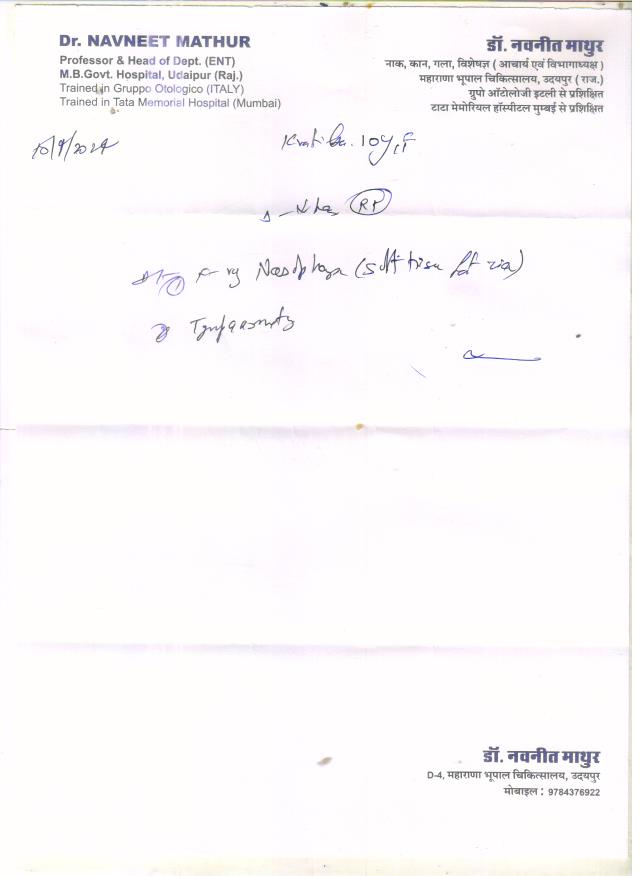 Dr. NAVNEET MATHUR
Professor & Head of Dept. (ENT)
M.B.Govt. Hospital, Udaipur (Raj.)
Trained in Gruppo Otologico (ITALY)
Trained in Tata Memorial Hospital (Mumbai)
डॉ. नवनीत माथुर
नाक, कान, गला, विशेषज्ञ ( आचार्य एवं विभागाध्यक्ष )
महाराणा भूपाल चिकित्सालय, उदयपुर ( राज.)
ग्रुपो ऑटोलोजी इटली से प्रशिक्षित
टाटा मेमोरियल हॉस्पीटल मुम्बई से प्रशिक्षित
10y, F
X-ray Nasopharynx (soft tissue
डॉ. नवनीत माथुर
D-4, महाराणा भूपाल चिकित्सालय, उदयपुर
मोबाइल : 9784376922